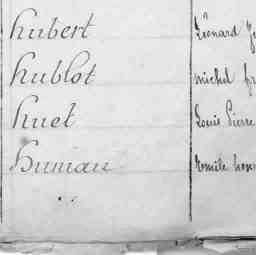 hubert Léonard
hublot michel
huet Louis Pierre
human